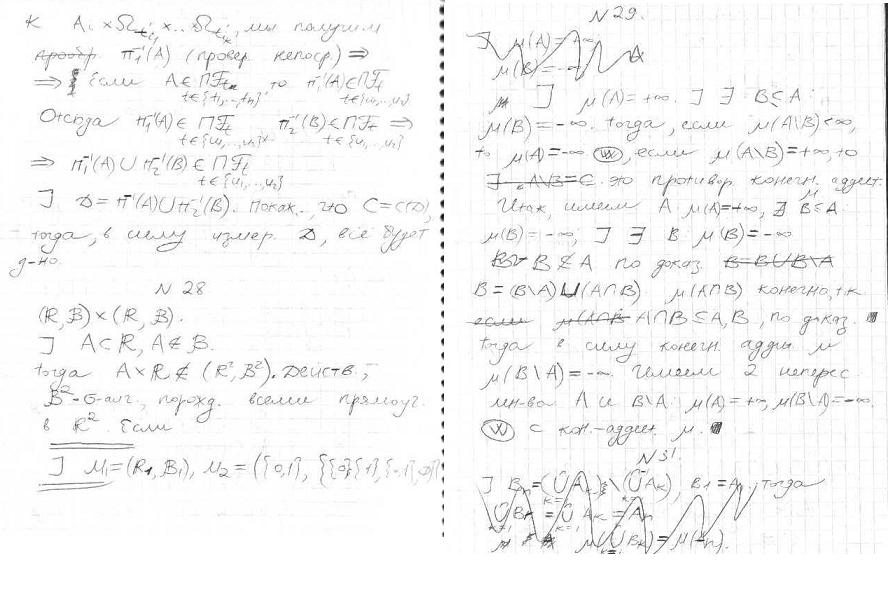 к A₁ × Ω_{t'_{i_1}} × .. Ω_{t'_{i_k}}, мы получим
прообр. π₁⁻¹(A) (провер. непоср.) ⇒
⇒ Если A ∈ ΠF_t, t∈{t₁,...,tₙ} то π₁⁻¹(A) ∈ ΠF_t t∈{u₁,...,u₂}
Отсюда π₁⁻¹(A) ∈ ΠF_t t∈{u₁,...,u₂} π₂⁻¹(B) ∈ ΠF_t ⇒ t∈{u₁,...,u₂}
⇒ π₁⁻¹(A) ∪ π₂⁻¹(B) ∈ ΠF_t t∈{u₁,...,u₂}
] D = π₁⁻¹(A) ∪ π₂⁻¹(B). Покаж., что C = C(D),
тогда, в силу измер. D, всё будет
д-но.
N 28
(R, B) × (R, B).
] A ⊂ R, A ∉ B.
тогда A × R ∉ (R², B²). Действ.,
B² - σ-алг., порожд. всеми прямоуг.
в R². Если
] M₁ = (R₁, B₁), M₂ = ({0,1}, {{0},{1},{0,1},∅})
N 29.
] μ(A) = +∞
μ(B) = -∞
] μ(A) = +∞. ] ∃ B ⊆ A:
μ(B) = -∞. тогда, если μ(A\B) < ∞,
то μ(A) = -∞ Ⓦ, если μ(A\B) = +∞, то
] A\B = C это противор конечн. аддит.
Итак, имеем A μ(A) = +∞, ∄ B ⊆ A:
μ(B) = -∞, ] ∃ B μ(B) = -∞
B ⊄ A по доказ. B = B∪B\A
B = (B\A) ⊔ (A∩B) μ(A∩B) конечно, т.к
если μ(A∩B A∩B ⊆ A, B, по доказ.
Тогда в силу конечн. аддит. μ
μ(B\A) = -∞. Имеем 2 неперес
мн-ва A и B\A: μ(A) = +∞, μ(B\A) = -∞.
Ⓦ с кон.-аддит. μ.
N 31
] Bₙ = (∪Aₖ) \ (∪Aₖ), B₁ = A₁, тогда
∪Bₖ = ∪Aₖ = Aₙ
μ(∪Bₖ) = μ(Aₙ).